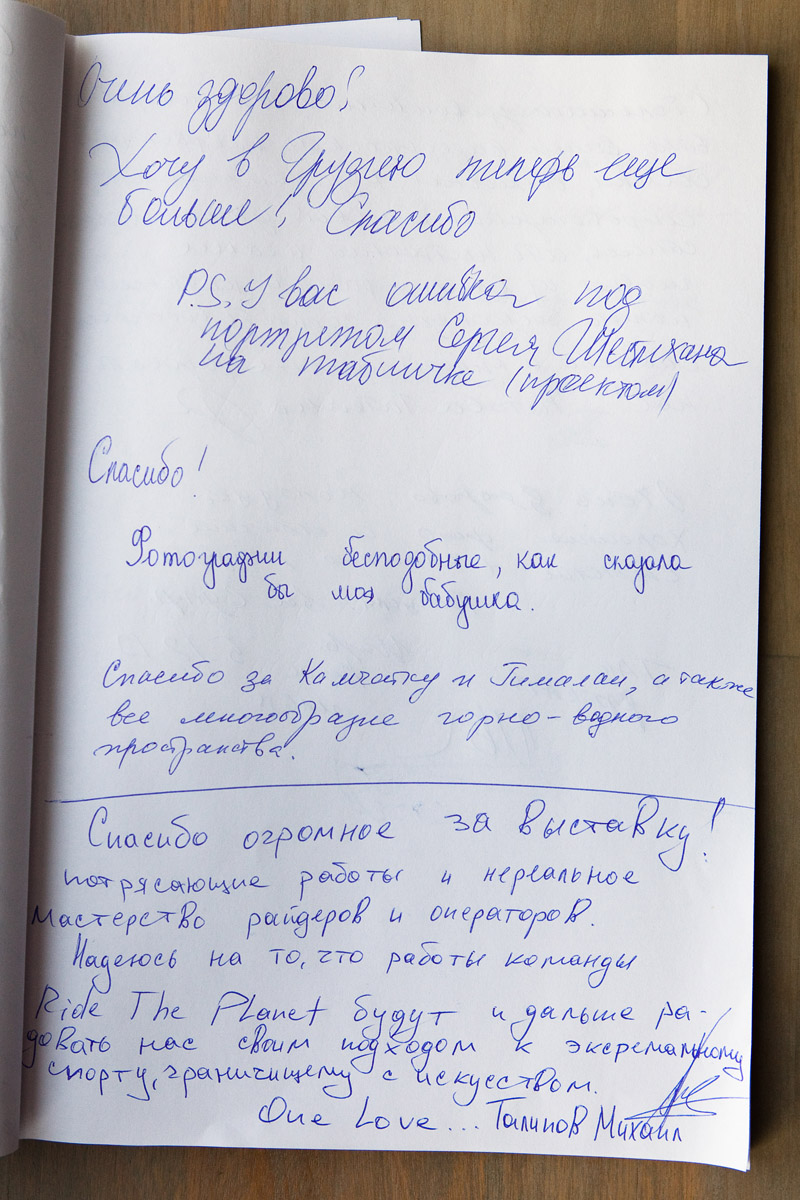 Очень здорово!
Хочу в Грузию теперь еще
больше! Спасибо
P.S. У вас ошибка под
портретом Сергея Шестихана
на табличке (проектом)
Спасибо!
Фотографии бесподобные, как сказала
бы моя бабушка.
Спасибо за Камчатку и Гималаи, а также
все многообразие горно-водного
пространства.
Спасибо огромное за выставку!
потрясающие работы и нереальное
мастерство райдеров и операторов.
Надеюсь на то, что работы команды
Ride The Planet будут и дальше ра-
довать нас своим подходом к эксремальному
спорту, граничищему с искусством.
One Love... Талипов Михаил